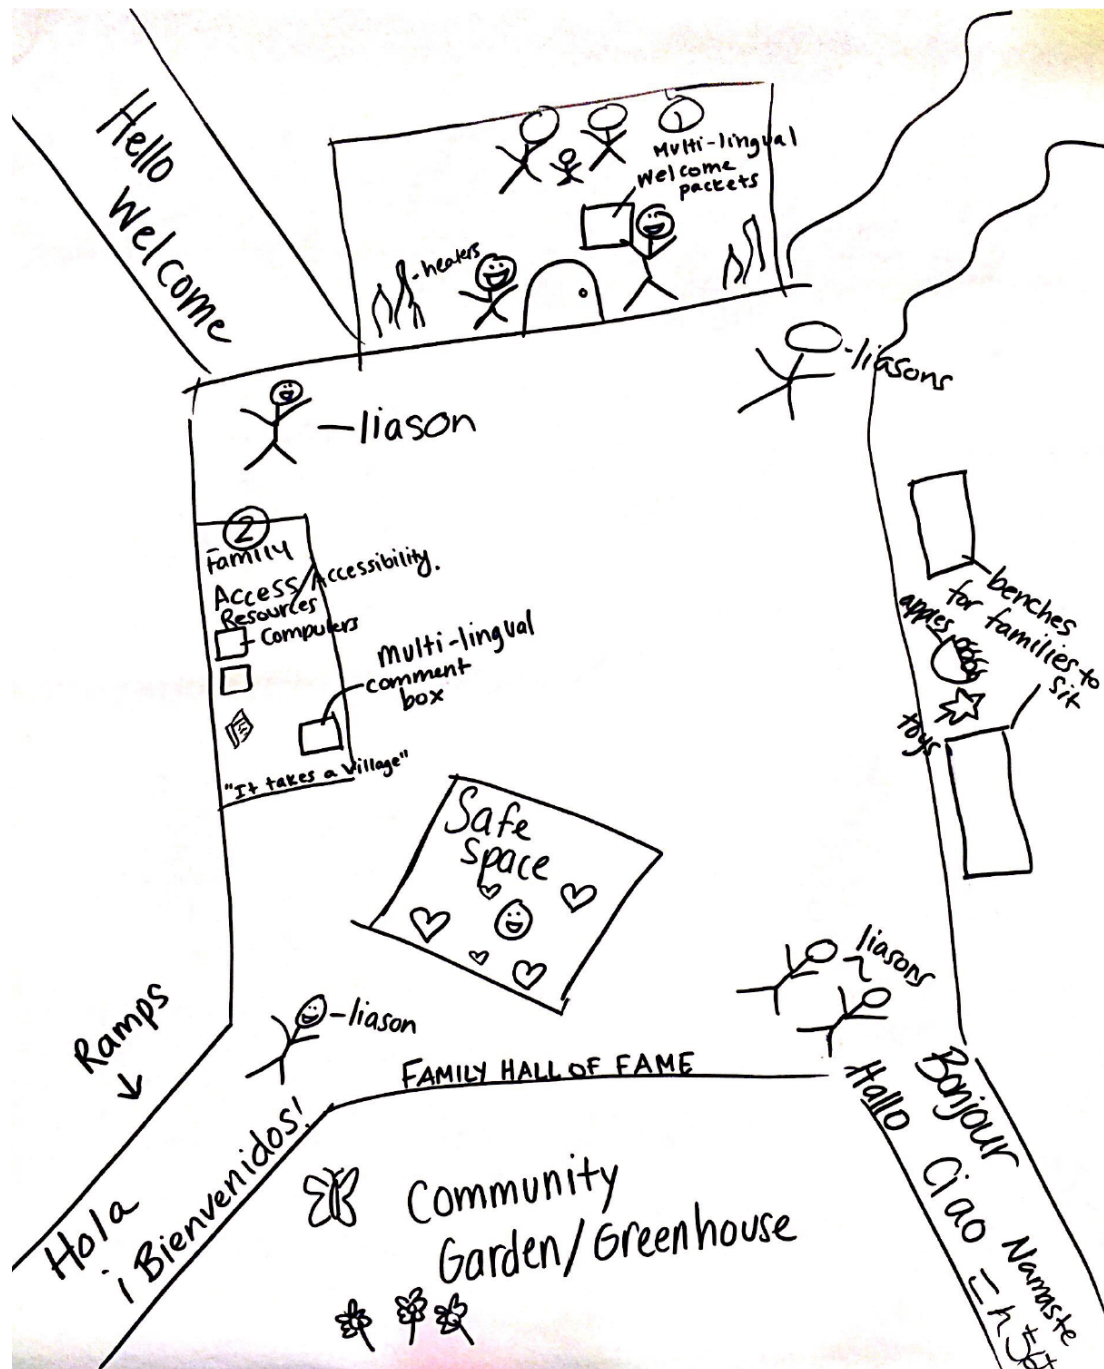 Hello
Welcome
1
Multi-lingual
Welcome
packets
-heaters
-liasons
-liason
2
Family
Access/Accessibility.
Resources
-Computers
Multi-lingual
comment
box
"It takes a village"
benches
for families to
sit
apples
toys
Safe
space
-liason
liasons
FAMILY HALL OF FAME
Ramps
Hola
¡Bienvenidos!
Community
Garden/Greenhouse
Bonjour
Hallo
Ciao
Namaste